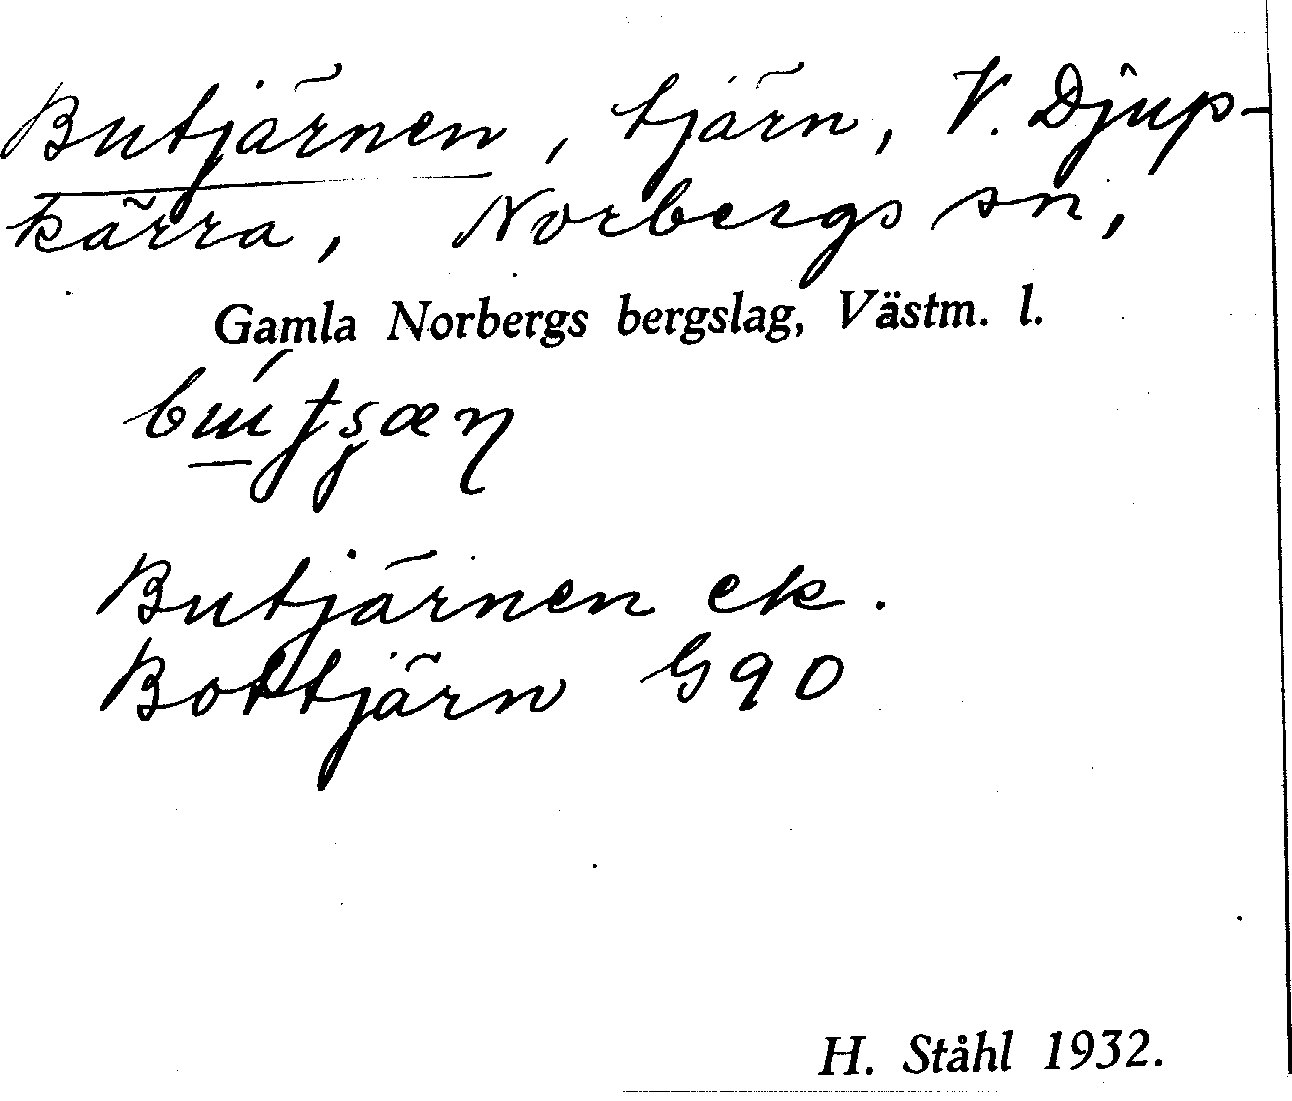 Butjärnen, tjärn, V. Djup-
kärra, Norbergs sn,
Gamla Norbergs bergslag, Västm. l.
Butjärnen ek.
Bottjärn G90
H. Ståhl 1932.